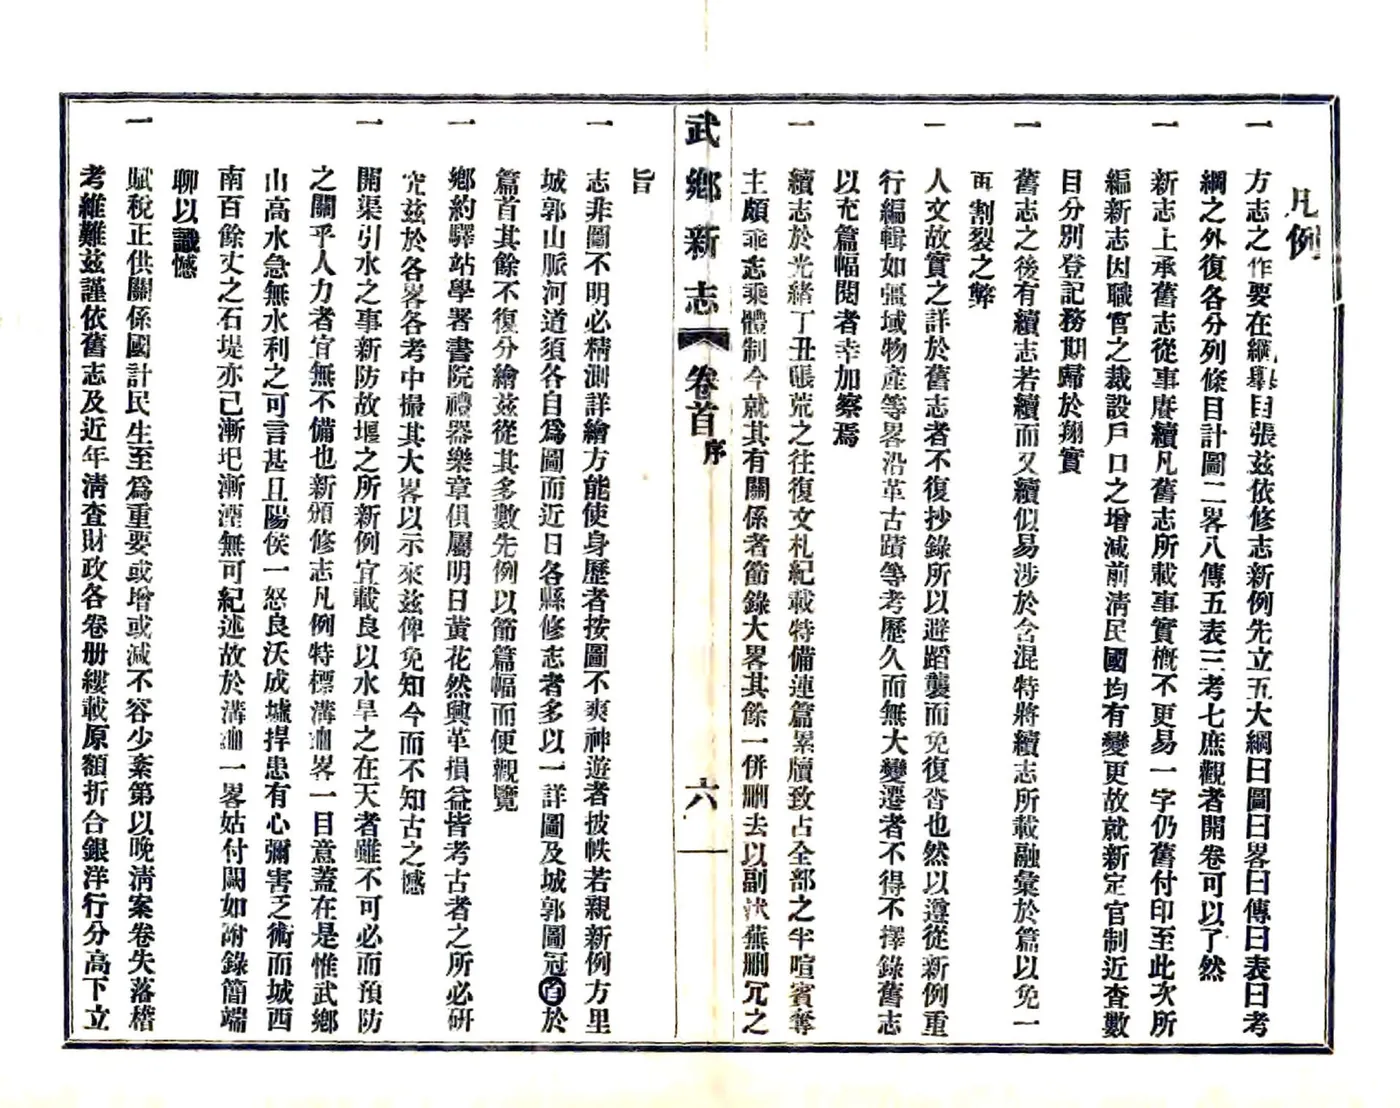 凡例
一 方志之作要在綱舉目張茲依修志新例先立五大綱曰圖曰畧曰傳曰表曰考
綱之外復各分列條目計圖二畧八傳五表三考七庶觀者開卷可以了然
一 新志上承舊志從事賡續凡舊志所載事實槪不更易一字仍舊付印至此次所
編新志因職官之裁設戶口之增減前淸民國均有變更故就新定官制近查數
目分別登記務期歸於翔實
一 舊志之後有續志若續而又續似易涉於含混特將續志所載融彙於篇以免一
再割裂之弊
一 人文故實之詳於舊志者不復抄錄所以避蹈襲而免復沓也然以遵從新例重
行編輯如彊域物產等畧沿革古蹟等考歷久而無大變遷者不得不擇錄舊志
以充篇幅閱者幸加察焉
一 續志於光緒丁丑賑荒之往復文札紀載特備連篇累牘致占全部之半喧賓奪
主頗乖志乘體制今就其有關係者節錄大畧其餘一併删去以副汰蕪删冗之
旨
武鄉新志 卷首 序 六
一 志非圖不明必精測詳繪方能使身歷者按圖不爽神遊者披帙若親新例方里
城郭山脈河道須各自爲圖而近日各縣修志者多以一詳圖及城郭圖冠首於
篇首其餘不復分繪茲從其多數先例以節篇幅而便觀覽
一 鄉約驛站學署書院禮器樂章俱屬明日黃花然興革損益皆考古者之所必研
究茲於各畧各考中撮其大畧以示來茲俾免知今而不知古之憾
一 開渠引水之事新防故堰之所新例宜載良以水旱之在天者雖不可必而預防
之關乎人力者宜無不備也新頒修志凡例特標溝洫畧一目意蓋在是惟武鄉
山高水急無水利之可言甚且陽侯一怒良沃成墟捍患有心彌害乏術而城西
南百餘丈之石堤亦已漸圮漸湮無可紀述故於溝洫一畧姑付闕如附錄簡端
聊以識憾
一 賦稅正供關係國計民生至爲重要或增或減不容少紊第以晚淸案卷失落稽
考維難茲謹依舊志及近年淸查財政各卷册縷載原額折合銀洋行分高下立